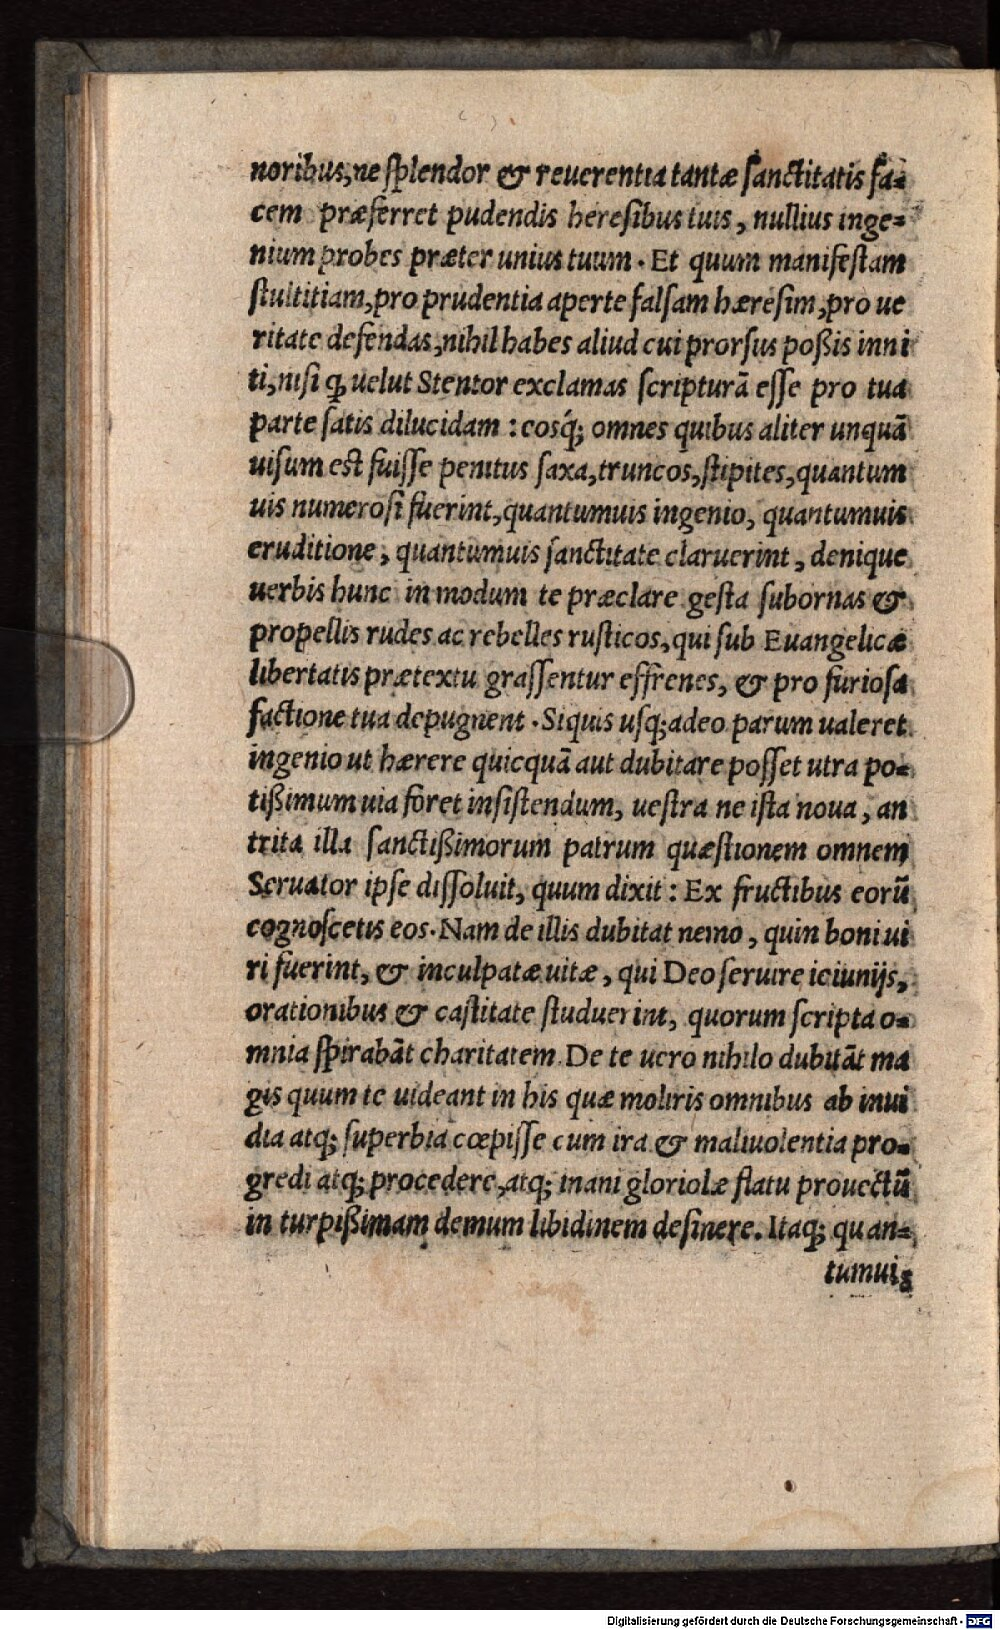 noribus, ne ſplendor & reuerentia tantæ ſanctitatis fa=
cem præferret pudendis hereſibus tuis, nullius inge=
nium probes præter unius tuum. Et quum manifeſtam
ſtultitiam, pro prudentia aperte falſam hæreſim, pro ue
ritate defendas, nihil habes aliud cui prorſus poßis inni
ti, niſi ꝙ uelut Stentor exclamas ſcripturã eſſe pro tua
parte ſatis dilucidam: eosq́; omnes quibus aliter unquã
uiſum eſt fuiſſe penitus ſaxa, truncos, ſtipites, quantum
uis numeroſi fuerint, quantumuis ingenio, quantumuis
eruditione, quantumuis ſanctitate claruerint, denique
uerbis hunc in modum te præclare geſta ſubornas &
propellis rudes ac rebelles ruſticos, qui ſub Euangelicæ
libertatis prætextu graſſentur effrenes, & pro furioſa
factione tua depugnent. Siquis uſq; adeo parum ualeret
ingenio ut hærere quicquã aut dubitare poſſet utra po=
tißimum uia foret inſiſtendum, ueſtra ne iſta noua, an
trita illa ſanctißimorum patrum quæſtionem omnem
Seruator ipſe diſſoluit, quum dixit: Ex fructibus eorũ
cognoſcetis eos. Nam de illis dubitat nemo, quin boni ui
ri fuerint, & inculpatæ uitæ, qui Deo ſeruire ieiunijs,
orationibus & caſtitate ſtuduerint, quorum ſcripta o=
mnia ſpirabãt charitatem. De te uero nihilo dubitãt ma
gis quum te uideant in his quæ moliris omnibus ab inui
dia atq; ſuperbia cœpiſſe cum ira & maliuolentia pro=
gredi atq; procedere, atq; inani gloriolæ flatu prouectũ
in turpißimam demum libidinem deſinere. Itaq; quan=
tumuis
Digitalisierung gefördert durch die Deutsche Forschungsgemeinschaft - DFG